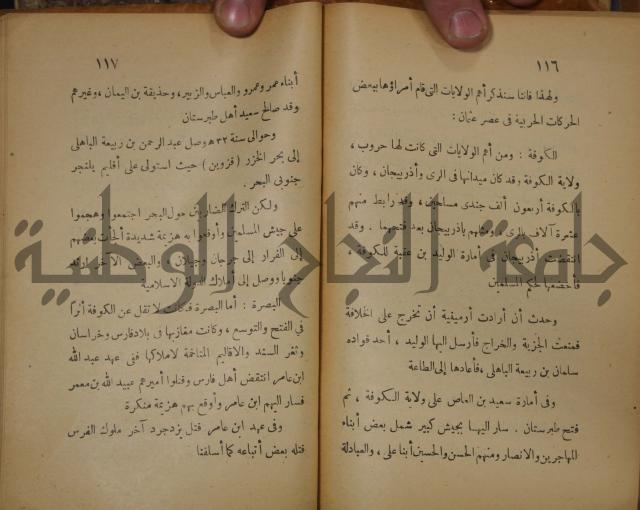 ١١٦
ولهذا فاننا سنذكر أهم الولايات التى قام أمراؤها ببعض
الحركات الحربية فى عصر عثمان :
الكوفة : ومن أهم الولايات التى كانت لها حروب ،
ولاية الكوفة وقد كان ميدانها فى الرى وأذربيجان ، وكان
بالكوفة أربعون ألف جندى مسلحين ، وقد رابط منهم
عشرة آلاف بالرى ، ومثلهم بأذربيجان بعد فتحهما . وقد
انتقضت أذربيجان فى أمارة الوليد بن عقبة للكوفة ،
فأخضعها لحكم المسلمين
وحدث أن أرادت أرمينية أن تخرج على الخلافة
فمنعت الجزية والخراج فأرسل اليها الوليد ، أحد قواده
سلمان بن ربيعة الباهلى ،فأعادها إلى الطاعة
وفى أمارة سعيد بن العاص على ولاية الكوفة ، تم
فتح طبرستان . سار اليها بجيش كبير شمل بعض أبناء
المهاجرين والانصار ومنهم الحسن والحسين أبنا على ، والعبادلة
١١٧
أبناء عمر وعمرو والعباس والزبير، وحذيفة بن اليمان ، وغيرهم
وقد صالح سعيد أهل طبرستان
وحوالى سنة ٣٢ ه وصل عبد الرحمن بن ربيعة الباهلى
إلى بحر الخزر ( قزوين ) حيث استولى على أقليم بلنجر
جنوبى البحر .
ولكن الترك الضاربين حول البحر اجتمعوا وهجموا
على جيش المسلمين وأوقعوا به هزيمة شديدة ألجأت بعضهم
إلى الفرار إلى جرجان وجيلان ، والبعض الآخر ارتد
جنوبا ووصل إلى أملاك الدولة الاسلامية
البصرة : أما البصرة فكانت لا تقل عن الكوفة أثرا
فى الفتح والتوسع ، وكانت مغازيها فى بلاد فارس وخراسان
وثغر السند والاقاليم المتاخمة لاملاكها ففى عهد عبد الله
ابن عامر انتقض أهل فارس وقتلوا أميرهم عبيد الله بن معمر
فسار اليهم ابن عامر وأوقع بهم هزيمة منكرة
وفى عهد ابن عامر قتل يزدجرد آخر ملوك الفرس
قتله بعض أتباعه كما أسلفنا
جامعة النجاح الوطنية